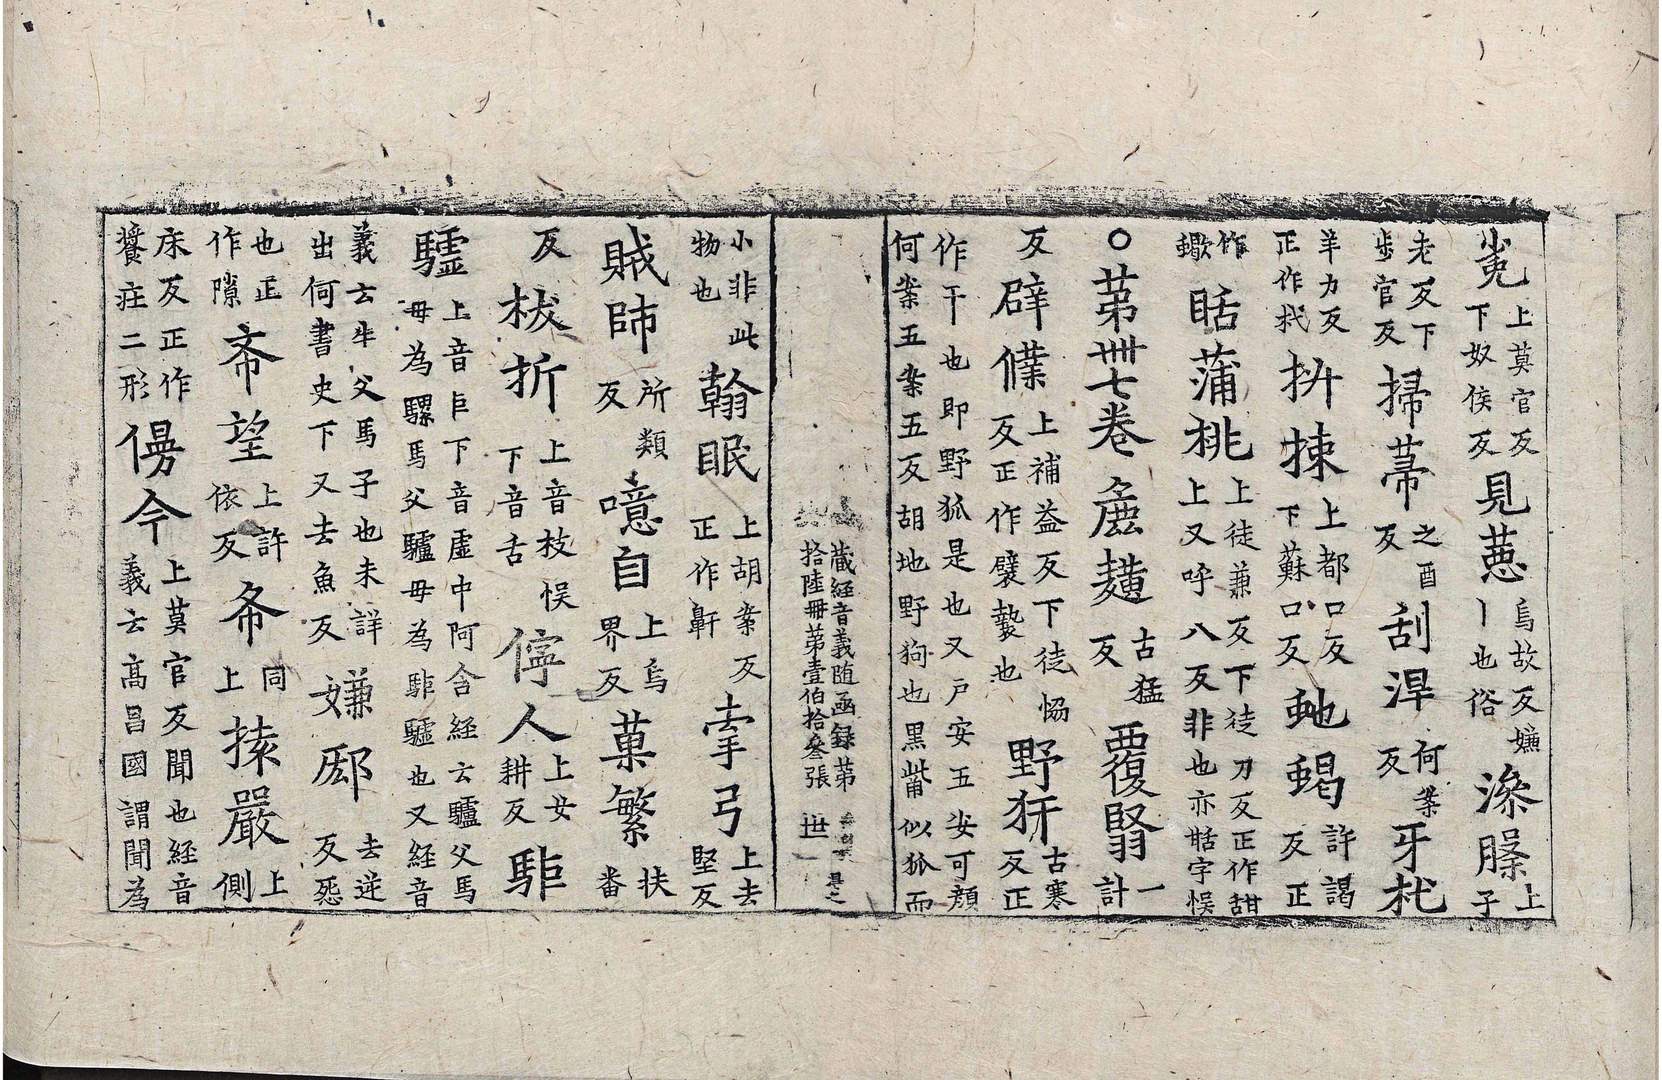 上莫官反下奴侯反見蒠烏故反嫌丨也俗上子
老反下步官反掃菷之酉反刮浧何䇿反牙杙
羊力反正作杙抍揀上都口反下蘇口反虵蝎許謁反正
作蠍蒲桃上徒兼反下徒刀反正作甜上又呼八反非也亦甛字悮
○苐卌七卷麁䵃古猛反覆翳一計
反躃㒒上補益反下徒恊反正作襞褺也野犴古寒反正
作干也即野狐是也又戶安五安可顔何案五案五反胡地野狗也黑觜似狐而
藏経音義随函録第
拾陸冊第壹伯拾叄張 世
小非此物也翰眠上胡案反正作鼾牽弓上去堅反
賊師所類反噫自上烏界反菓繁扶番
反枝折上音枝悮下音舌儜人上女耕反駏
驉上音巨下音虚中阿含経云驢父馬母為騾馬父驢母為駏驉也又経音
義云牛父馬子也未詳出何書史下又去魚反嫌郄去逆反𢙣
也正作隙希望上許依反希同上㨷嚴上側
床反正作莊二形僈今上莫官反聞也経音義云高昌國謂聞為